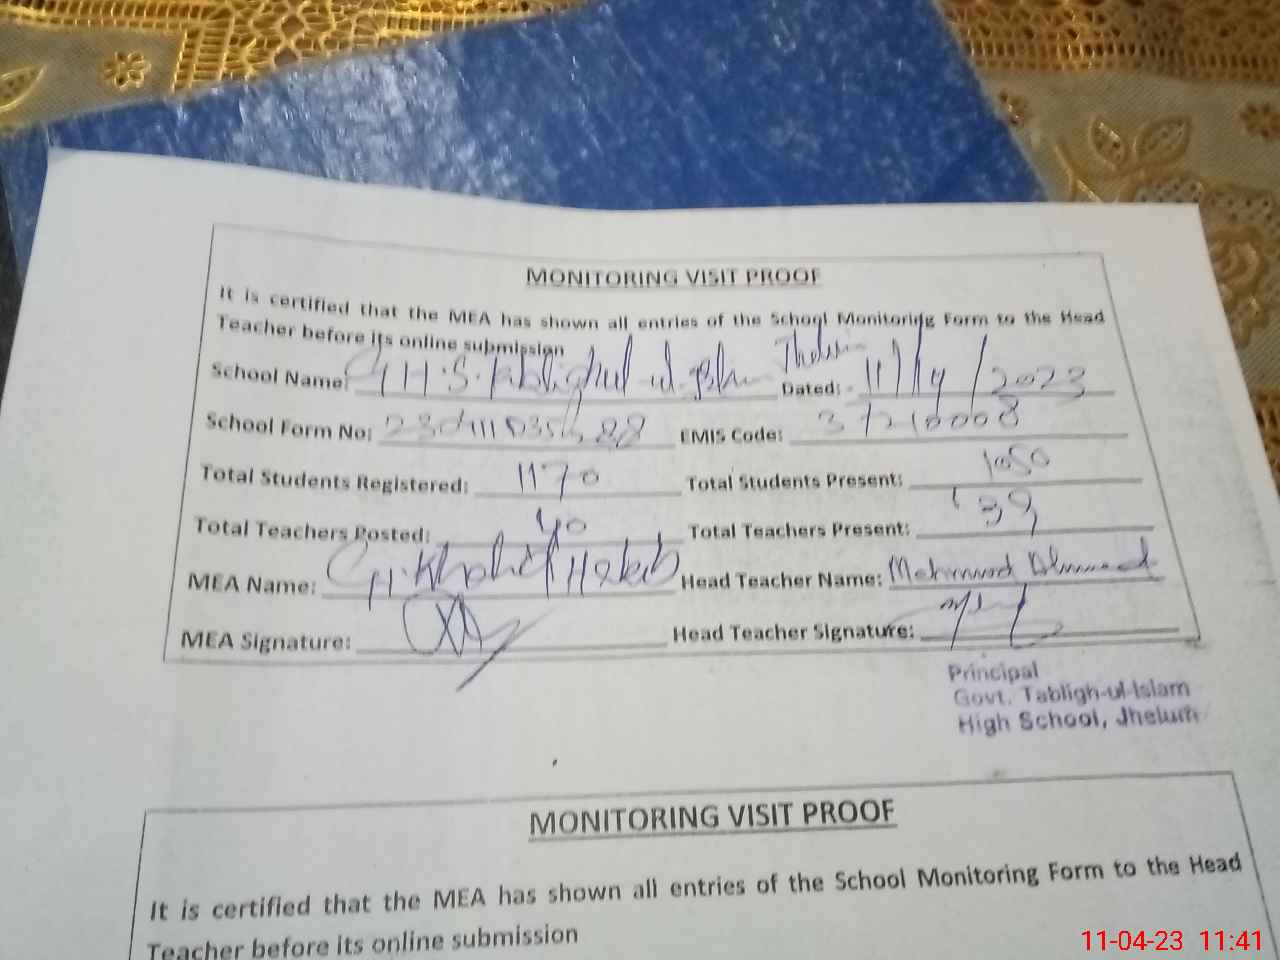 MONITORING VISIT PROOF
It is certified that the MEA has shown all entries of the School Monitoring Form to the Head
Teacher before its online submission
School Name: G.H.S. Tabligh-ul-Islam Jhelum Dated: 11/ /2023
School Form No: EMIS Code: 37210008
Total Students Registered: 1170 Total Students Present: 1050
Total Teachers Posted: 40 Total Teachers Present: 39
MEA Name: CH. Khalid Head Teacher Name: Mahmood Ahmad
MEA Signature: Head Teacher Signature:
Principal
Govt. Tabligh-ul-Islam
High School, Jhelum
MONITORING VISIT PROOF
It is certified that the MEA has shown all entries of the School Monitoring Form to the Head
Teacher before its online submission
11-04-23 11:41